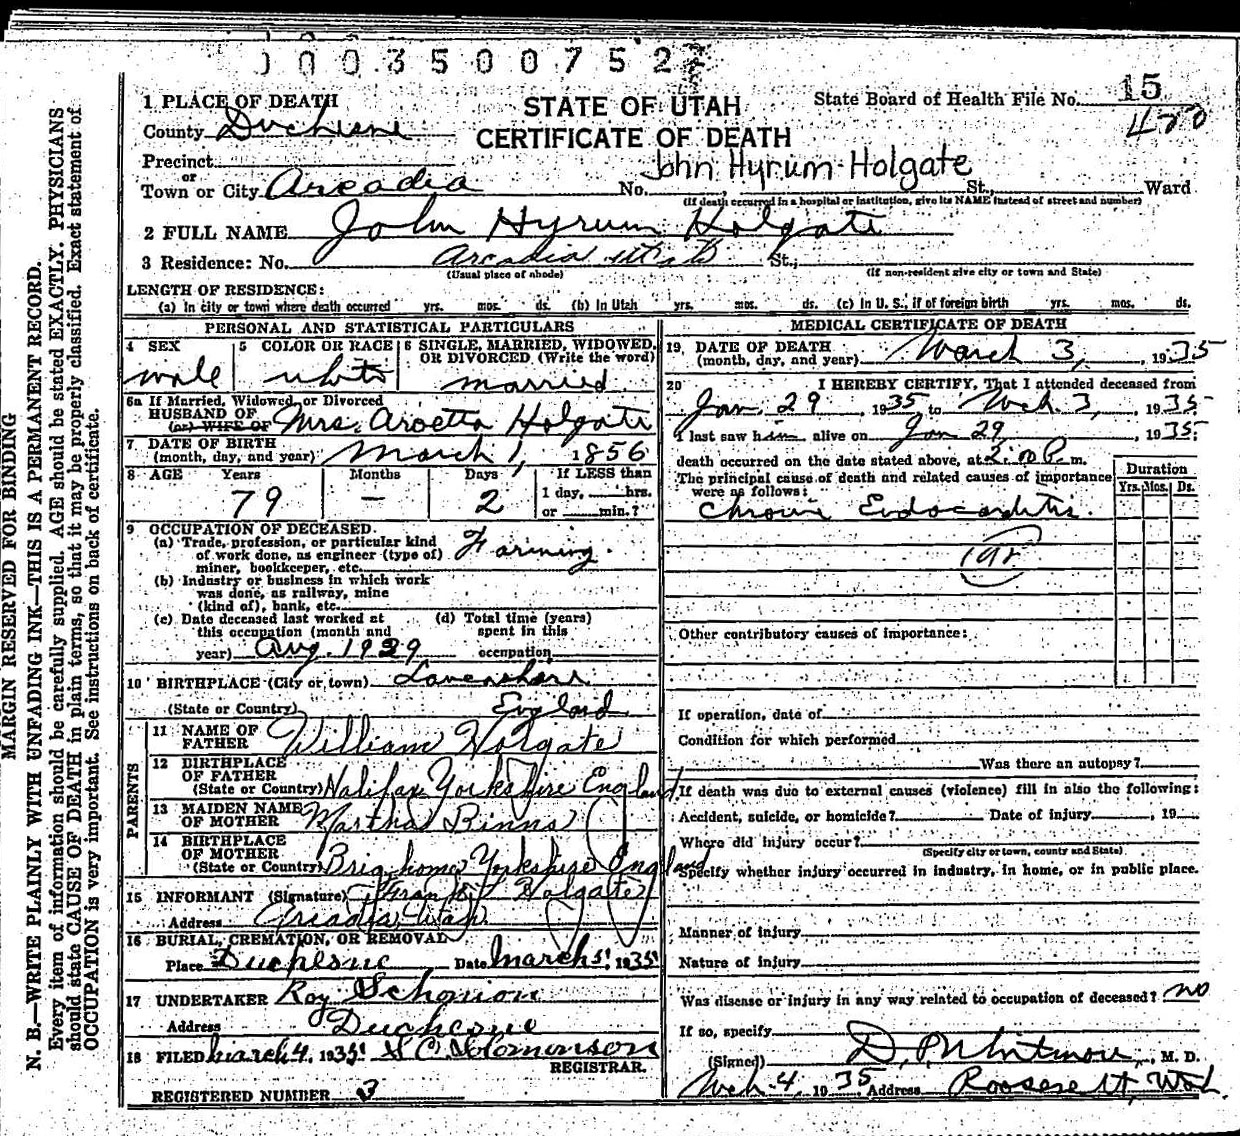 0003500752
1 PLACE OF DEATH
STATE OF UTAH
State Board of Health File No. 15
County Duchesne
CERTIFICATE OF DEATH
420
Precinct
John Hyrum Holgate
or
Town or City Arcadia No. , St., Ward
(If death occurred in a hospital or institution, give its NAME instead of street and number)
2 FULL NAME John Hyrum Holgate
3 Residence: No. Arcadia Utah St.,
(Usual place of abode) (If non-resident give city or town and State)
LENGTH OF RESIDENCE:
(a) In city or town where death occurred yrs. mos. ds. (b) In Utah yrs. mos. ds. (c) In U. S., if of foreign birth yrs. mos. ds.
PERSONAL AND STATISTICAL PARTICULARS
4 SEX 5 COLOR OR RACE 6 SINGLE, MARRIED, WIDOWED, OR DIVORCED (Write the word)
male white married
6a If Married, Widowed, or Divorced
HUSBAND OF
(or) WIFE OF Mrs. Aroetta Holgate
7 DATE OF BIRTH
(month, day, and year) March 1, 1856
8 AGE Years Months Days If LESS than
79 – 2 1 day, hrs.
or min.?
9 OCCUPATION OF DECEASED.
(a) Trade, profession, or particular kind
of work done, as engineer (type of)
miner, bookkeeper, etc. Farming.
(b) Industry or business in which work
was done, as railway, mine
(kind of), bank, etc.
(c) Date deceased last worked at
this occupation (month and
year) Aug. 1929
(d) Total time (years)
spent in this
occupation
10 BIRTHPLACE (City or town)
(State or Country) England
PARENTS
11 NAME OF
FATHER William Holgate
12 BIRTHPLACE
OF FATHER
(State or Country) Halifax Yorkshire England
13 MAIDEN NAME
OF MOTHER Martha Binns
14 BIRTHPLACE
OF MOTHER
(State or Country) Yorkshire England
15 INFORMANT (Signature) Holgate
Address Arcadia, Utah
16 BURIAL, CREMATION, OR REMOVAL
Place Duchesne Date March 5, 1935
17 UNDERTAKER Roy
Address Duchesne
18 FILED March 4, 1935
REGISTRAR.
REGISTERED NUMBER 3
MEDICAL CERTIFICATE OF DEATH
19 DATE OF DEATH
(month, day, and year) March 3, 1935
20 I HEREBY CERTIFY, That I attended deceased from
Jan. 29, 1935 to Mch. 3, 1935
I last saw him alive on Jan 29, 1935.
death occurred on the date stated above, at 2:00 P. m.
The principal cause of death and related causes of importance
were as follows:
Duration
Yrs. Mos. Ds.
Chronic Endocarditis.
Other contributory causes of importance:
If operation, date of
Condition for which performed
Was there an autopsy?
If death was due to external causes (violence) fill in also the following:
Accident, suicide, or homicide? Date of injury , 19
Where did injury occur?
(Specify city or town, county and State)
Specify whether injury occurred in industry, in home, or in public place.
Manner of injury
Nature of injury
Was disease or injury in any way related to occupation of deceased? no
If so, specify
(Signed) , M. D.
Mch. 4, 1935 Address Roosevelt, Utah
MARGIN RESERVED FOR BINDING
N. B.—WRITE PLAINLY WITH UNFADING INK—THIS IS A PERMANENT RECORD.
Every item of information should be carefully supplied. AGE should be stated EXACTLY. PHYSICIANS
should state CAUSE OF DEATH in plain terms, so that it may be properly classified. Exact statement of
OCCUPATION is very important. See instructions on back of certificate.